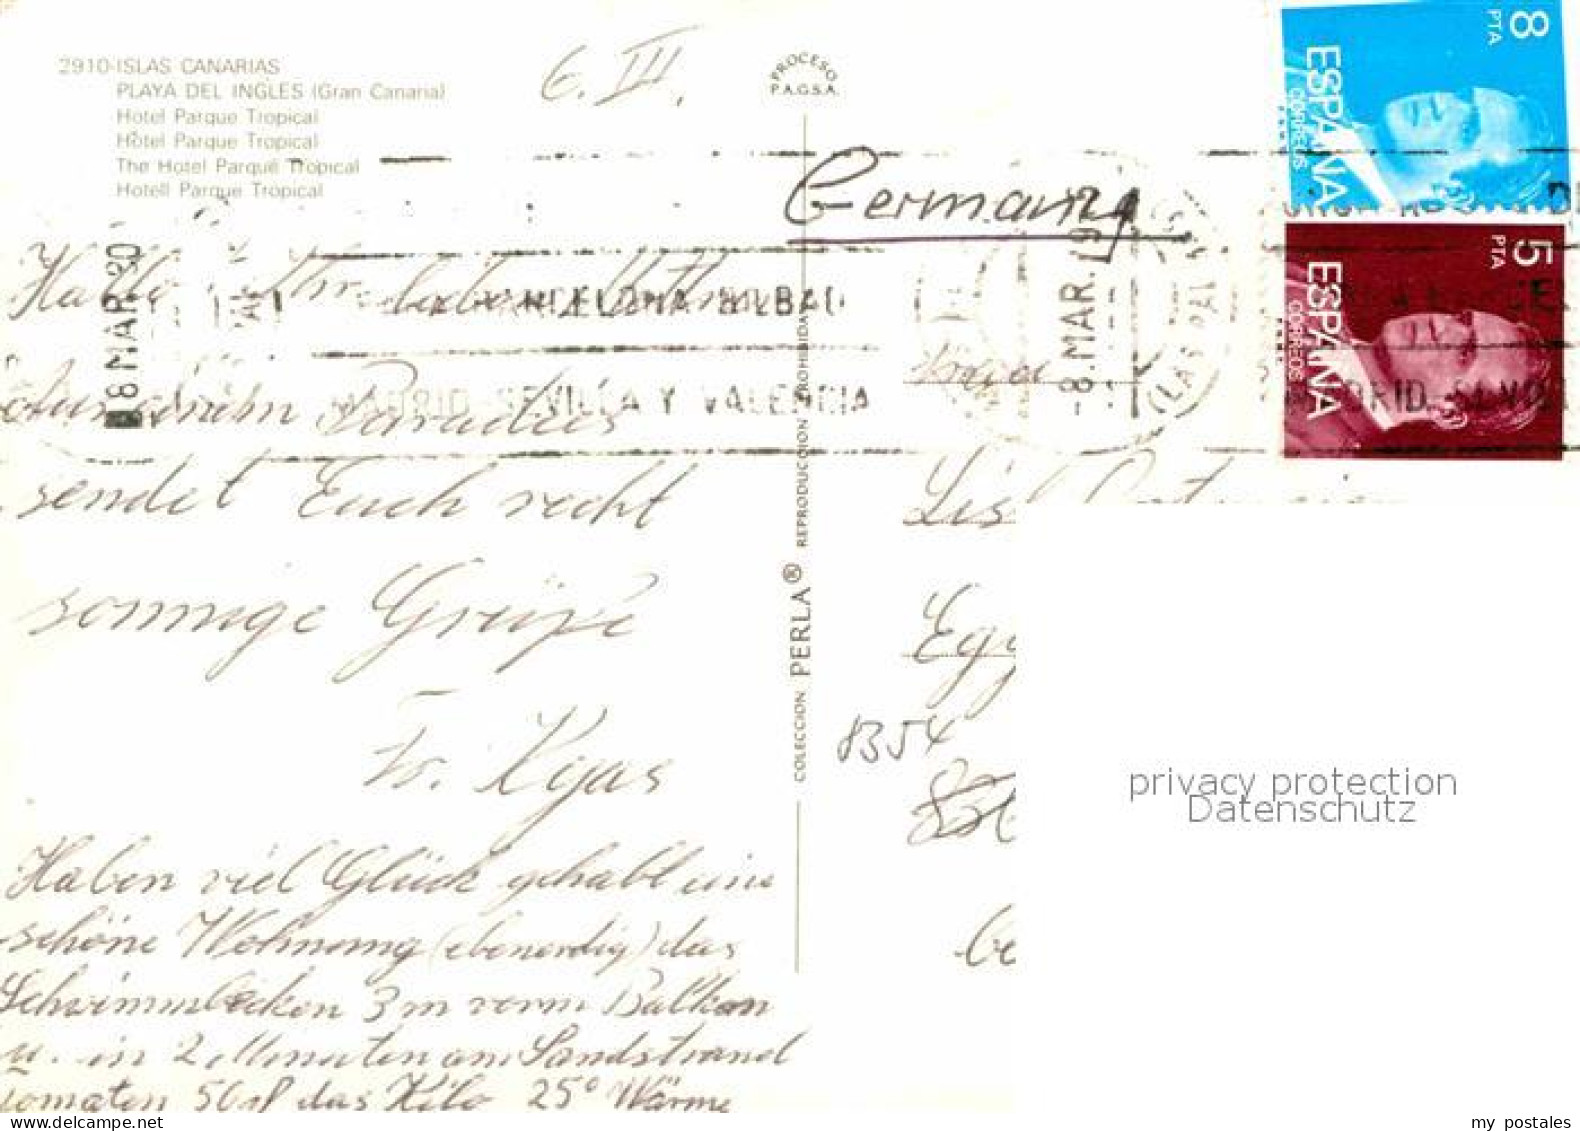 2910-ISLAS CANARIAS
PLAYA DEL INGLES (Gran Canaria)
Hotel Parque Tropical
Hôtel Parque Tropical
The Hotel Parque Tropical
Hotell Parque Tropical
6. III.
PROCESO
P.A.G.S.A.
Germany
8 PTA
ESPAÑA
CORREOS
5 PTA
ESPAÑA
CORREOS
8 MAR. 80
BARCELONA BILBAO
MADRID SEVILLA Y VALENCIA
8. MAR. 19
(LAS PAL
Hallo Ihr lieben
Paradies
sendet Euch recht
sonnige Grüße
Fr.
Haben viel Glück gehabt eine
schöne Wohnung (ebenerdig) das
Schwimmbecken 3 m vorm Balkon
u. in 2 Minuten am Sandstrand
Tomaten 50 das Kilo 25° Wärme
COLECCION PERLA® REPRODUCCION PROHIBIDA
8354
privacy protection
Datenschutz
my postales